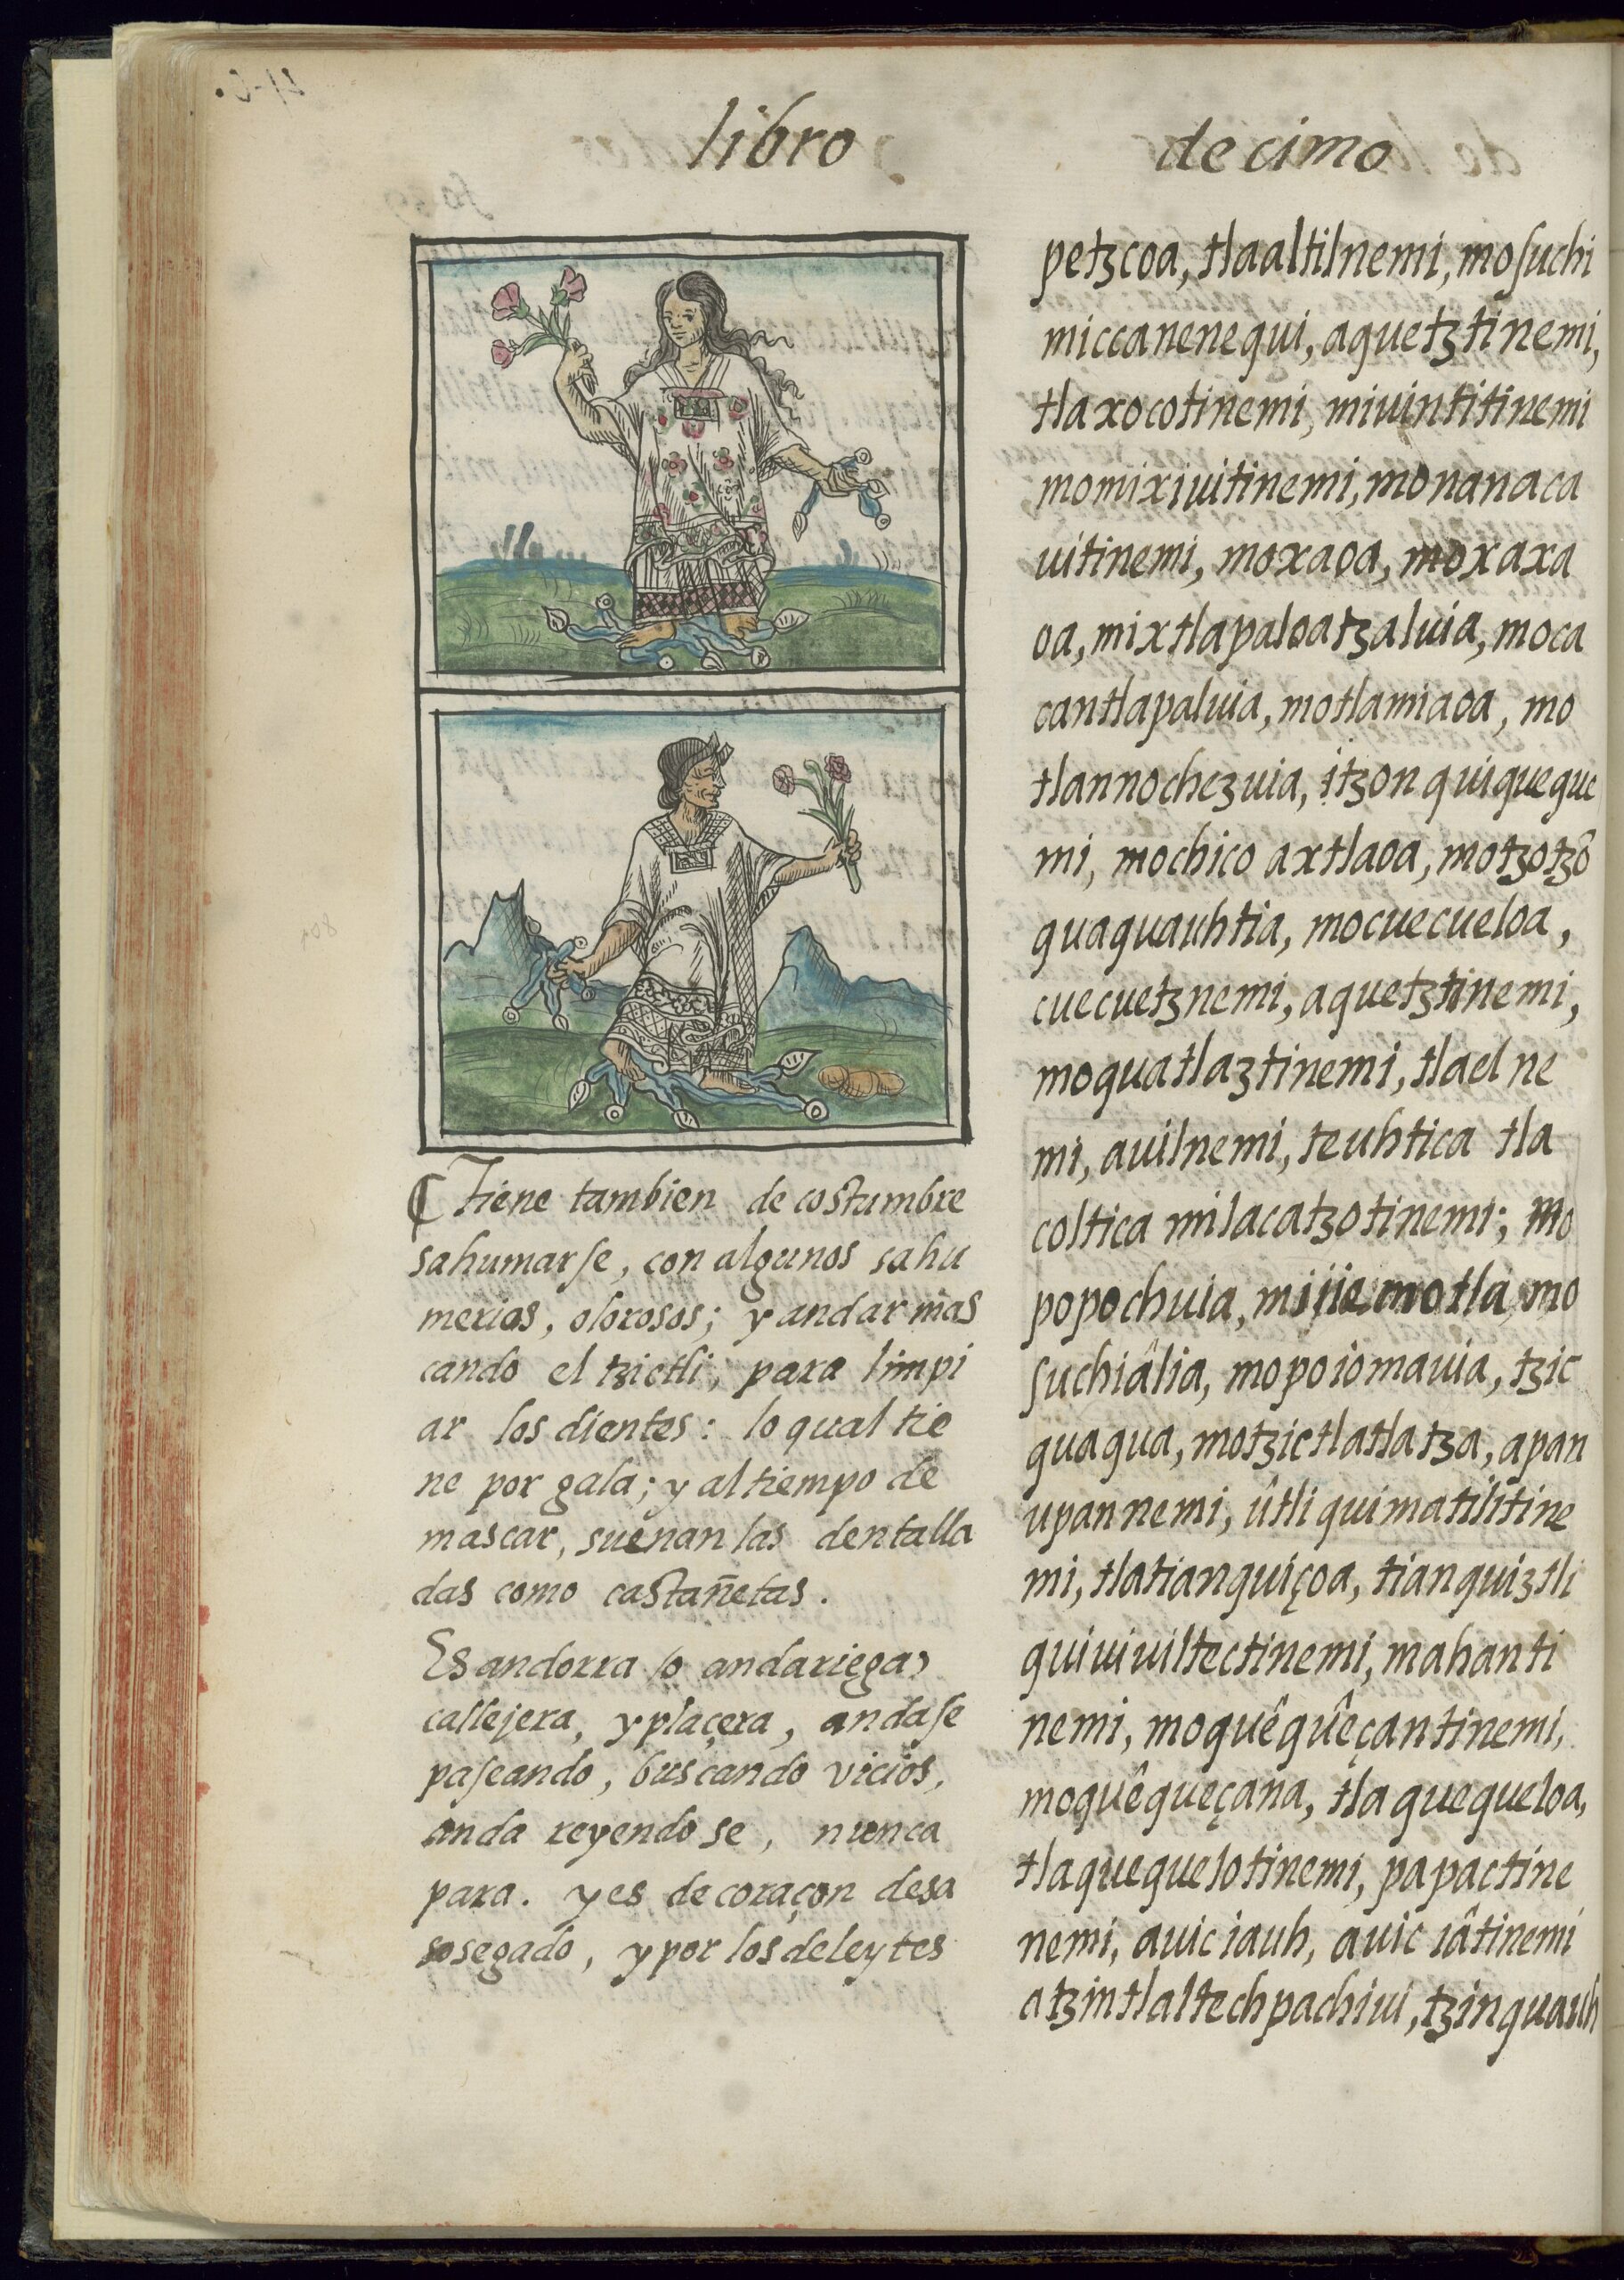 libro decimo
¶ Tiene tambien de costumbre
sahumarse, con algunos sahu
merios, olorosos; y andar mas
cando el tzictli, para limpi
ar los dientes: lo qual tie
ne por gala; y al tiempo de
mascar, suenan las dentalla
das como castañetas.
Es andorra / o andariega)
callejera, y plaçera, andase
paseando, buscando vicios,
anda reyendo se, nunca
para. y es de coraçon desa
sosegado, y por los deleytes
petzcoa, tlaaltilnemi, mosuchi
miccanenequi, aquetztinemi,
tlaxocotinemi, miuintitinemi
momixiuitinemi, monanaca
uitinemi, moxaoa, moxaxa
oa, mixtlapaloatzaluia, moca
cantlapaluia, motlamiaoa, mo
tlannochezuia, itzon quiqueque
mi, mochico axtlaoa, motzotzõ
quaquauhtia, mocuecueloa,
cuecuetznemi, aquetztinemi,
moquatlaztinemi, tlael ne
mi, auilnemi, teuhtica tla
coltica milacatzotinemi; mo
popochuia, mijiemotla, mo
suchiâlia, mopoiomauia, tzic
quaqua, motzictlatlatza, apan
upan nemi, ûtli quimatilitine
mi, tlatianquiçoa, tianquiztli
quiuiuiltectinemi, mahanti
nemi, moquêquêçantinemi,
moquêqueçana, tlaquequeloa,
tlaquequelotinemi, papactine
nemi, auic iauh, auic iâtinemi
atzintlaltechpachiui, tzinquauh